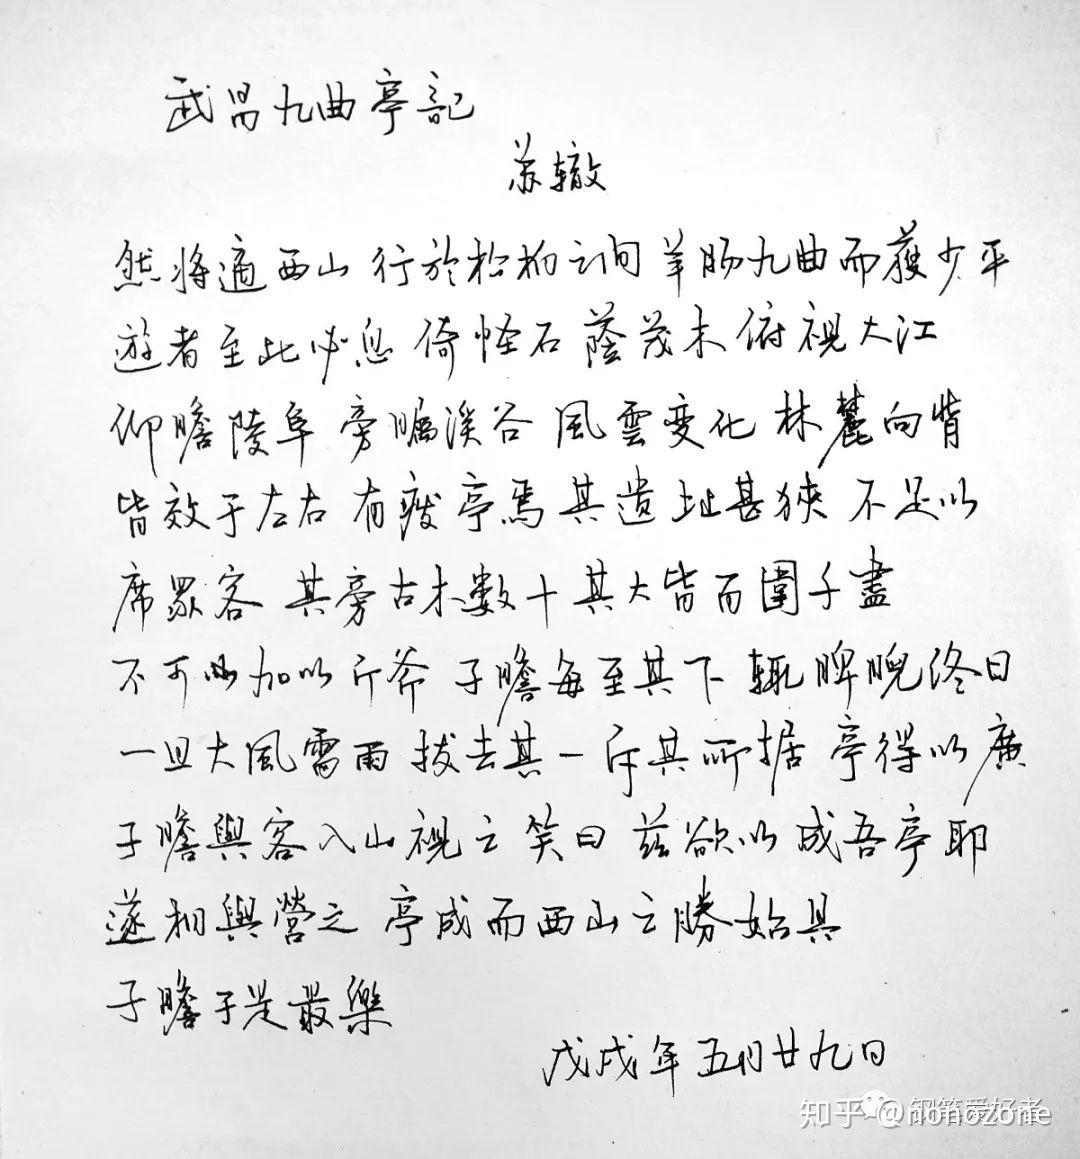 武昌九曲亭記
苏辙
然将適西山 行於松柏之间 羊肠九曲而獲少平
遊者至此必息 倚怪石 蔭茂木 俯視大江
仰瞻陵阜 旁矚溪谷 風雲变化 林麓向背
皆效于左右 有廢亭焉 其遺址甚狹 不足以
席眾客 其旁古木数十 其大皆百圍千盡
不可加以斤斧 子瞻每至其下 輒睥睨终日
一旦大風雷雨 拔去其一 斥其所据 亭得以廣
子瞻與客入山視之 笑曰 兹欲以成吾亭耶
遂相與營之 亭成而西山之勝始具
子瞻于是最樂
戊戌年五月廿九日
知乎 @nonozone
钢笔爱好者